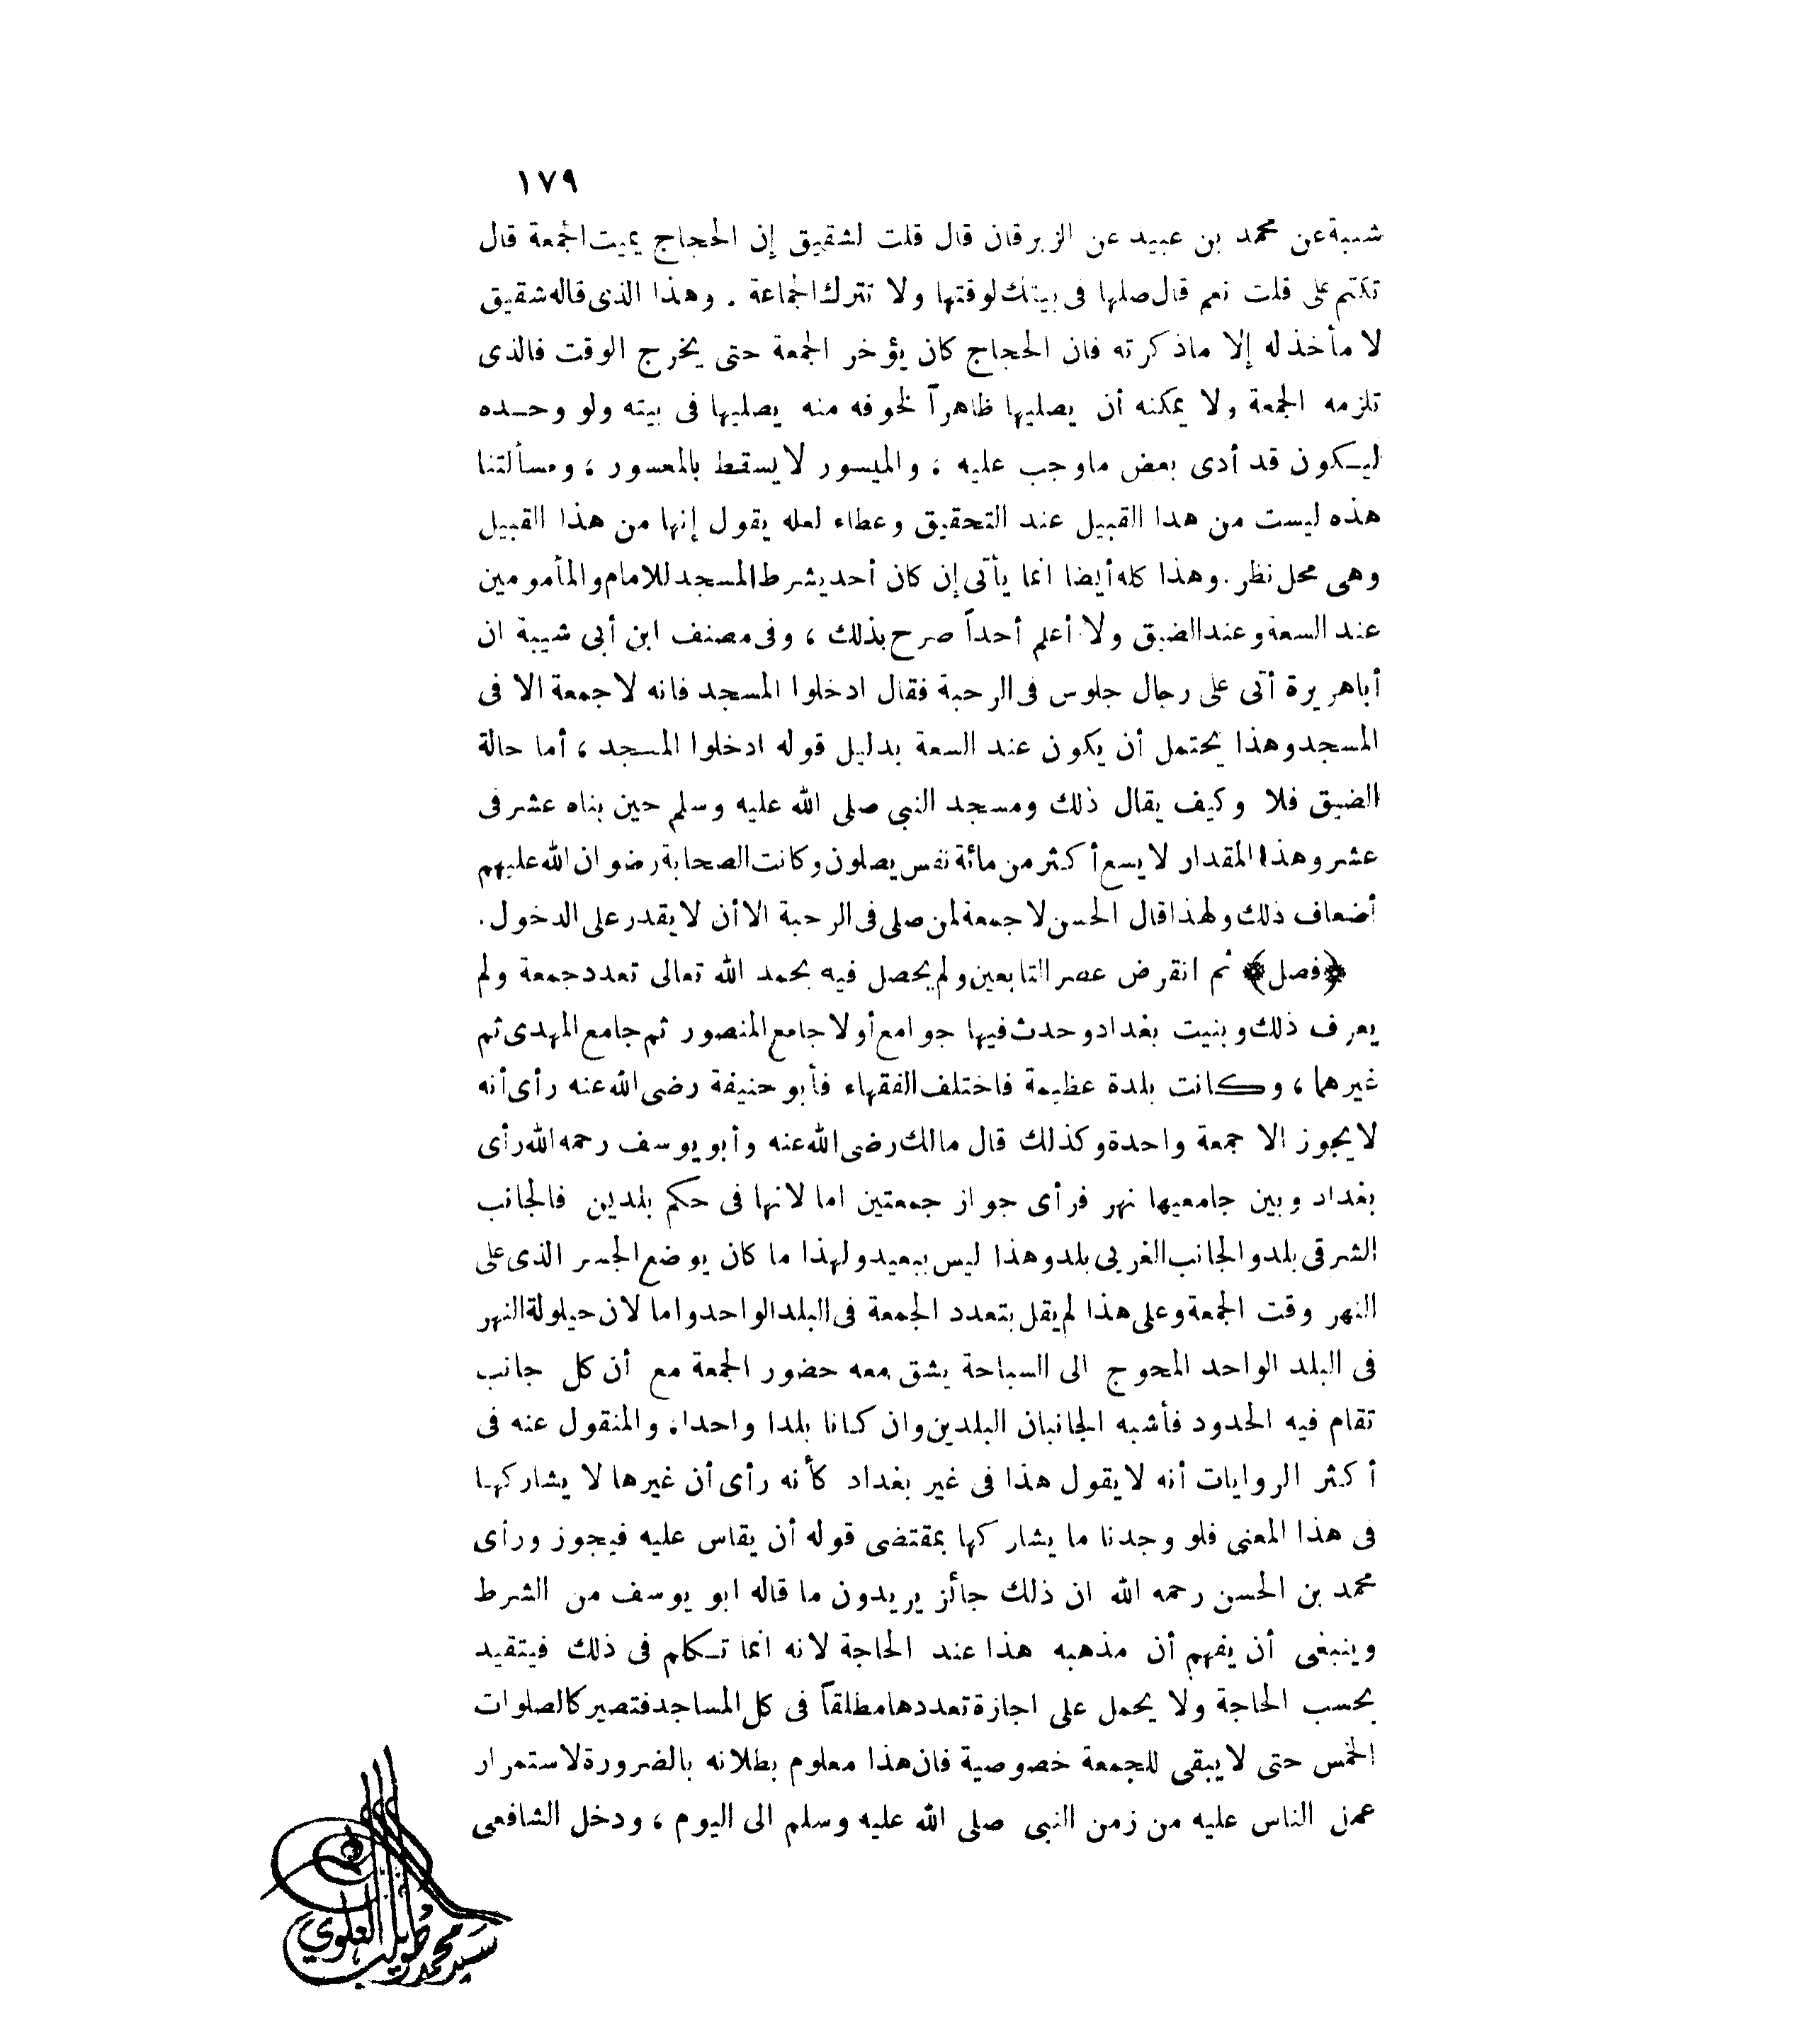 ١٧٩
شيبة عن محمد بن عبيد عن الزبرقان قال قلت لشقيق إن الحجاج يميت الجمعة قال
تكتم على قلت نعم قال صلها فى بيتك لوقتها ولا تترك الجماعة . وهذا الذى قاله شقيق
لا مأخذ له إلا ماذكرته فان الحجاج كان يؤخر الجمعة حتى يخرج الوقت فالذى
تلزمه الجمعة ولا يمكنه أن يصليها ظاهراً لخوفه منه يصليها فى بيته ولو وحـده
ليـكون قد أدى بعض ماوجب عليه ؛ والميسور لايسقط بالمعسور ، ومسألتنا
هذه ليست من هدا القبيل عند التحقيق وعطاء لعله يقول إنها من هذا القبيل
وهى محل نظر . وهذا كله أيضا انما يأتى إن كان أحد يشرط المسجد للامام والمأمومين
عند السعة وعند الضيق ولا أعلم أحداً صرح بذلك ، وفى مصنف ابن أبى شيبة ان
أباهريرة أتى على رجال جلوس فى الرحبة فقال ادخلوا المسجد فانه لاجمعة الا فى
المسجد وهذا يحتمل أن يكون عند السعة بدليل قوله ادخلوا المسجد ، أما حالة
الضيق فلا وكيف يقال ذلك ومسجد النبي صلى الله عليه وسلم حين بناه عشر فى
عشر وهذا المقدار لايسع أكثر من مائة نفس يصلون وكانت الصحابة رضوان الله عليهم
أضعاف ذلك ولهذا قال الحسن لاجمعة لمن صلى فى الرحبة الا أن لايقدر على الدخول .
﴿فصل﴾ ثم انقرض عصر التابعين ولم يحصل فيه بحمد الله تعالى تعدد جمعة ولم
يعرف ذلك وبنيت بغداد وحدث فيها جوامع أولا جامع المنصور ثم جامع المهدى ثم
غيرهما ، وكانت بلدة عظيمة فاختلف الفقهاء فأبو حنيفة رضى الله عنه رأى أنه
لايجوز الا جمعة واحدة وكذلك قال مالك رضى الله عنه وأبو يوسف رحمه الله رأى
بغداد وبين جامعيها نهر فرأى جواز جمعتين اما لانها فى حكم بلدين فالجانب
الشرقى بلد والجانب الغربى بلد وهذا ليس ببعيد ولهذا ما كان يوضع الجسر الذى على
النهر وقت الجمعة وعلى هذا لم يقل بتعدد الجمعة فى البلد الواحد واما لان حيلولة النهر
فى البلد الواحد المحوج الى السباحة يشق معه حضور الجمعة مع أن كل جانب
تقام فيه الحدود فأشبه الجانبان البلدين وان كانا بلدا واحدا . والمنقول عنه فى
أكثر الروايات أنه لايقول هذا فى غير بغداد كأنه رأى أن غيرها لا يشاركها
فى هذا المعنى فلو وجدنا ما يشاركها بمقتضى قوله أن يقاس عليه فيجوز ورأى
محمد بن الحسن رحمه الله ان ذلك جائز يريدون ما قاله ابو يوسف من الشرط
وينبغى أن يفهم أن مذهبه هذا عند الحاجة لانه انما تـكلم فى ذلك فيتقيد
بحسب الحاجة ولا يحمل على اجازة تعددها مطلقاً فى كل المساجد فتصير كالصلوات
الخمس حتى لايبقى للجمعة خصوصية فان هذا معلوم بطلانه بالضرورة لاستمرار
عمل الناس عليه من زمن النبى صلى الله عليه وسلم الى اليوم ، ودخل الشافعى
سيد محمد طويلب العلوي